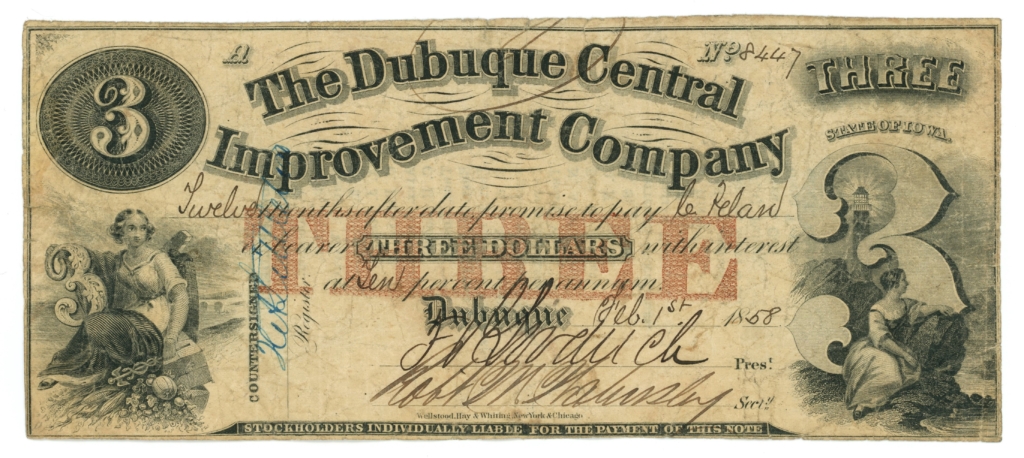 3
A
No 8447
THREE
The Dubuque Central
Improvement Company
STATE OF IOWA
3
Twelve months after date, promise to pay
or bearer THREE DOLLARS with interest
at Ten per cent per annum.
THREE
3
Dubuque Feb. 1st 1858
COUNTERSIGNED
Register
Prest.
Secry.
Wellstood, Hay & Whiting, New York & Chicago
STOCKHOLDERS INDIVIDUALLY LIABLE FOR THE PAYMENT OF THIS NOTE